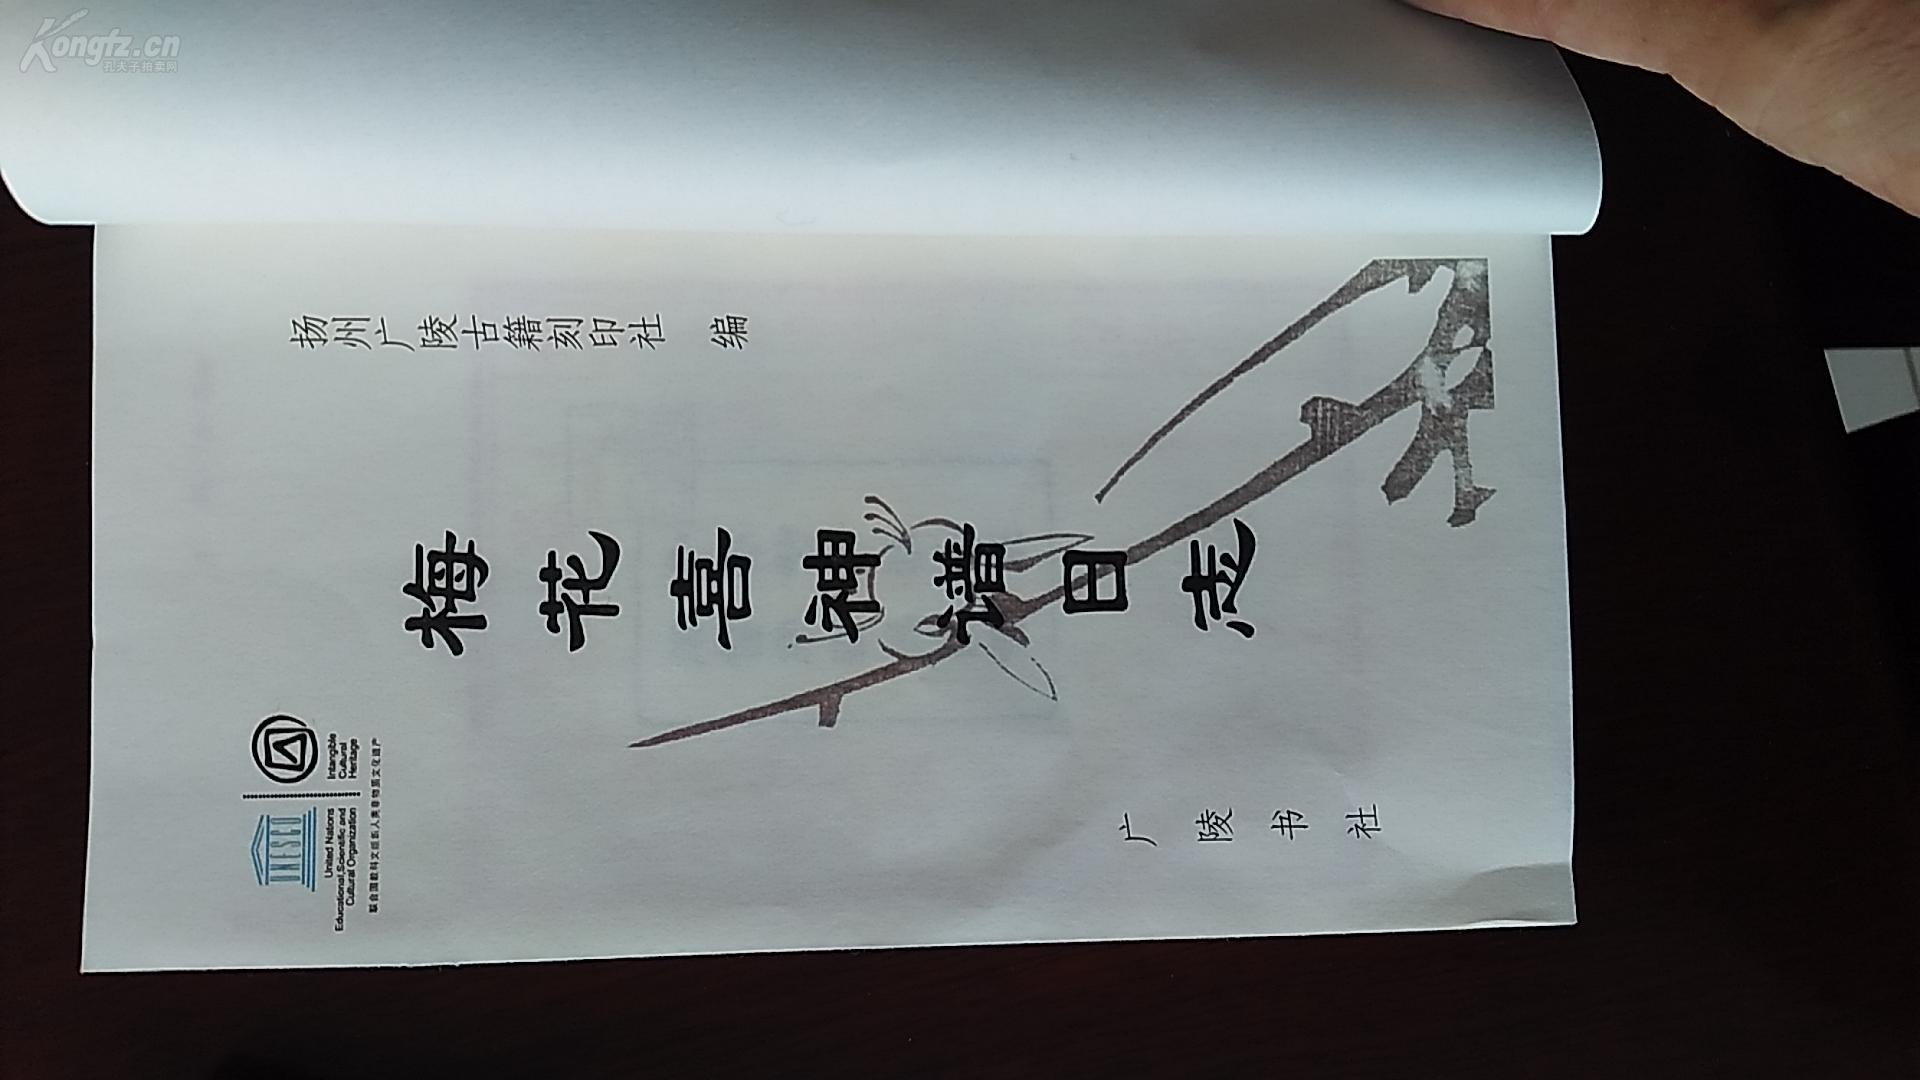 Kongfz.cn
孔夫子拍卖网
扬州广陵古籍刻印社 编
梅花喜神谱日志
广陵书社
UNESCO
United Nations
Educational, Scientific and
Cultural Organization
Intangible
Cultural
Heritage
联合国教科文组织人类非物质文化遗产